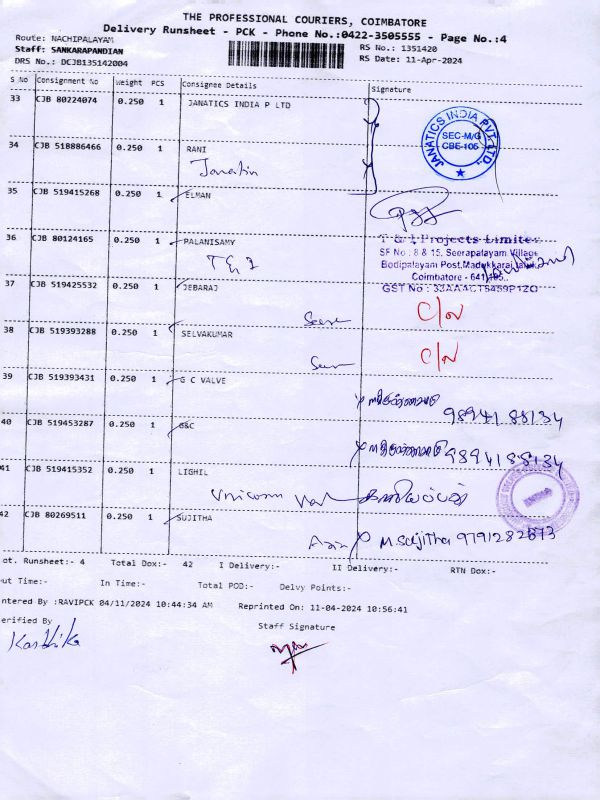 THE PROFESSIONAL COURIERS, COIMBATORE
Delivery Runsheet - PCK - Phone No.:0422-3505555 - Page No.:4
Route: NACHIPALAYAM
RS No.: 1351420
Staff: SANKARAPANDIAN
RS Date: 11-Apr-2024
DRS No.: DCJB135142004
S No Consignment No Weight PCS Consignee Details Signature
33 CJB 80224074 0.250 1 JANATICS INDIA P LTD
JANATICS INDIA PVT. LTD.,
SEC-M/G
CBE-105
34 CJB 518886466 0.250 1 RANI
35 CJB 519415268 0.250 1 ELMAN
36 CJB 80124165 0.250 1 PALANISAMY
T & I Projects Limited
SF No : 8 & 15, Seerapalayam Village
Bodipalayam Post, Madukkarai
Coimbatore - 641
GST No :
37 CJB 519425532 0.250 1 JEBARAJ
38 CJB 519393288 0.250 1 SELVAKUMAR
39 CJB 519393431 0.250 1 G C VALVE
98941 88134
40 CJB 519453287 0.250 1 G&C
98941 88134
41 CJB 519415352 0.250 1 LIGHIL
Unicorn
42 CJB 80269511 0.250 1 SUJITHA
M Sujitha
ot. Runsheet:- 4 Total Dox:- 42 I Delivery:- II Delivery:- RTN Dox:-
ut Time:- In Time:- Total POD:- Delvy Points:-
ntered By :RAVIPCK 04/11/2024 10:44:34 AM Reprinted On: 11-04-2024 10:56:41
erified By
Staff Signature
Karthika